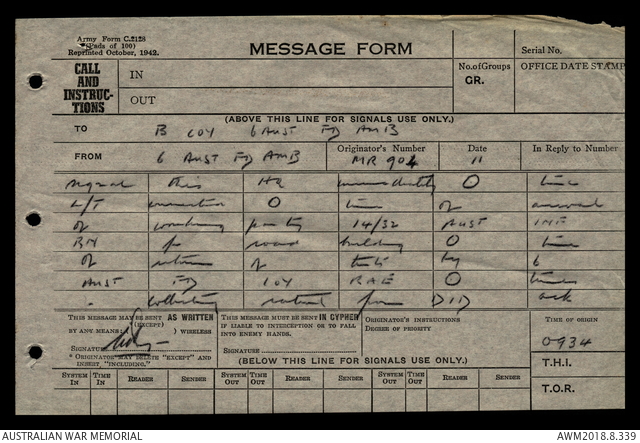 Army Form C.2128
(Pads of 100)
Reprinted October, 1942.
MESSAGE FORM
Serial No.
CALL AND INSTRUC-TIONS
IN
OUT
No. of Groups
GR.
OFFICE DATE STAMP
(ABOVE THIS LINE FOR SIGNALS USE ONLY.)
TO B COY 6 AUST FD AMB
FROM 6 AUST FD AMB
Originator's Number MR 904
Date 11
In Reply to Number
signal this HQ immediately O time
L/T O time of arrival
of working party 14/32 AUST INF
BN for road building O time
of return of by 6
AUST FD COY RAE O time
collecting from DID
THIS MESSAGE MAY BE SENT AS WRITTEN
(EXCEPT)
BY ANY MEANS ) WIRELESS
SIGNATURE
* ORIGINATOR MAY DELETE "EXCEPT" AND INSERT, "INCLUDING."
THIS MESSAGE MUST BE SENT IN CYPHER
IF LIABLE TO INTERCEPTION OR TO FALL INTO ENEMY HANDS.
SIGNATURE
ORIGINATOR'S INSTRUCTIONS
DEGREE OF PRIORITY
TIME OF ORIGIN
0934
T.H.I.
T.O.R.
(BELOW THIS LINE FOR SIGNALS USE ONLY.)
SYSTEM IN TIME IN READER SENDER SYSTEM OUT TIME OUT READER SENDER SYSTEM OUT TIME OUT READER SENDER
AUSTRALIAN WAR MEMORIAL
AWM2018.8.339